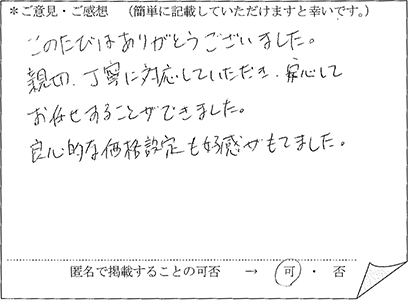 ＊ご意見・ご感想　（簡単に記載していただけますと幸いです。）
このたびはありがとうございました。
親切、丁寧に対応していただき、安心して
お任せすることができました。
良心的な価格設定も好感がもてました。
匿名で掲載することの可否　→　可・否